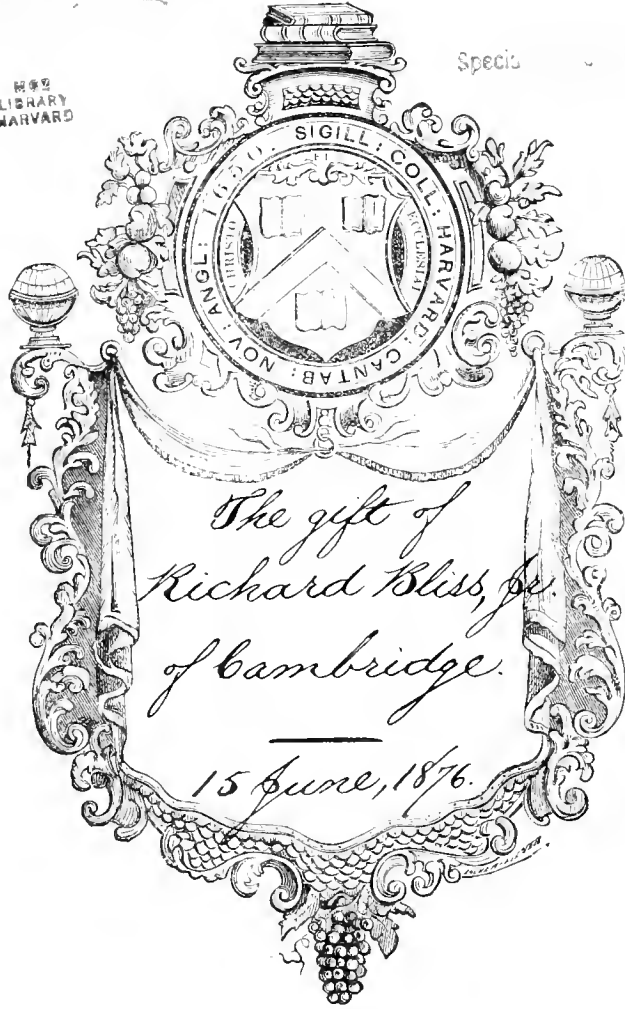 MCZ
LIBRARY
HARVARD
SIGILL: COLL: HARVARD: CANTAB: NOV: ANGL: 1650.
ET
CHRISTO
ECCLESIAE
The gift of
Richard Bliss, Jr.
of Cambridge.
15 June, 1876.